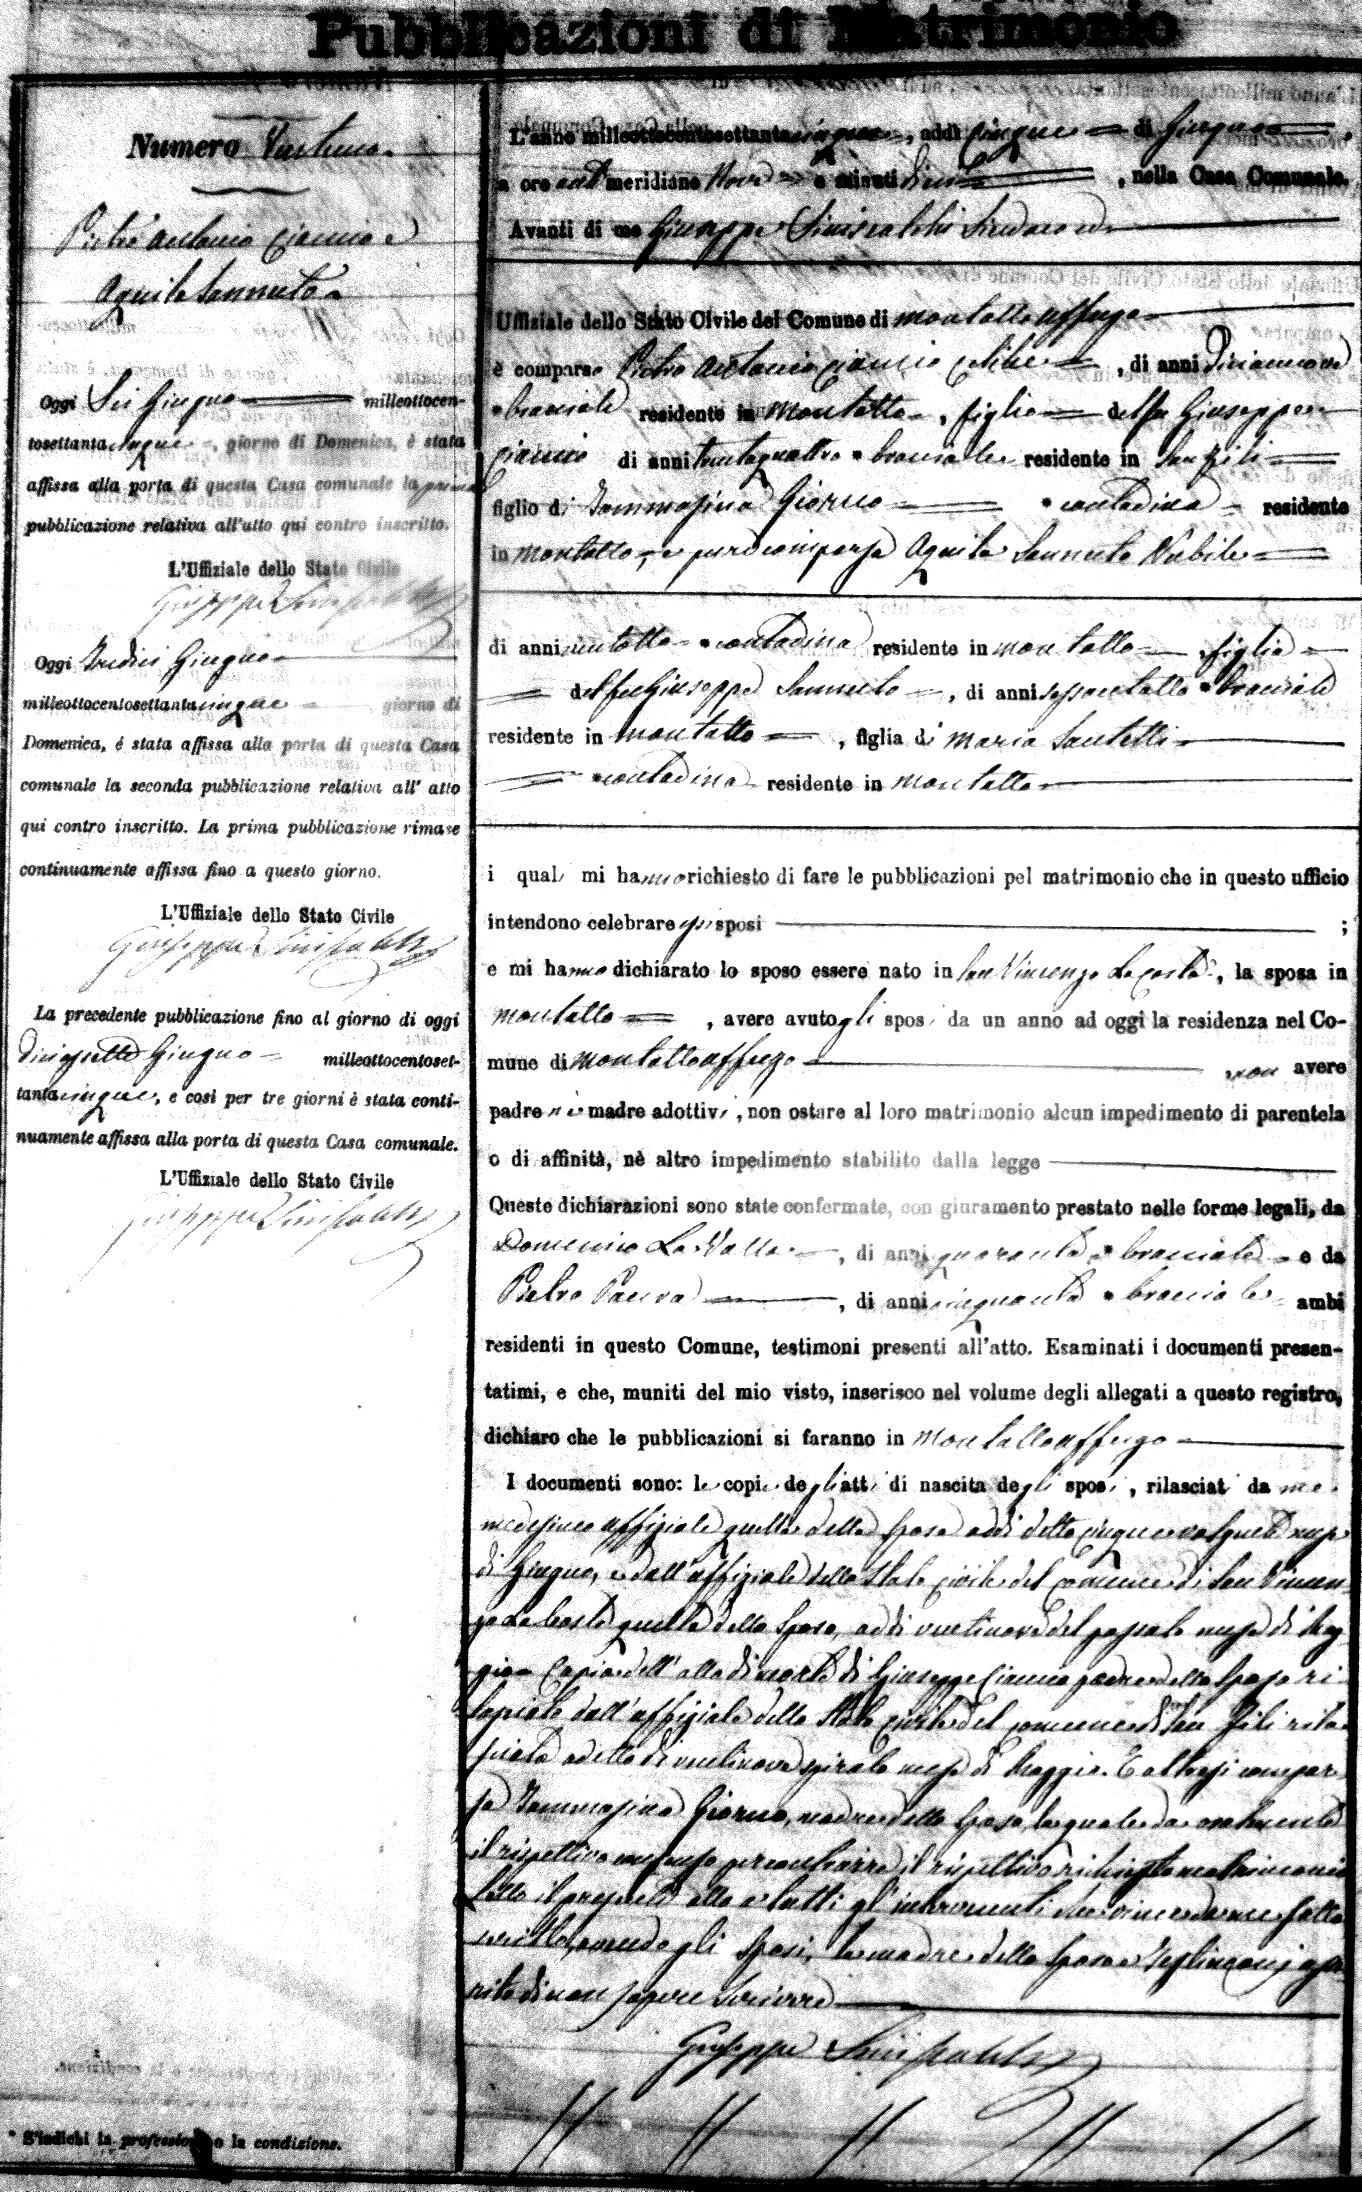 Pubblicazioni di Matrimonio
Numero Ventuno
Pietro Antonio Ciancio e
Aquila Sannuto
Oggi Sei Giugno milleottocen-
tosettantacinque, giorno di Domenica, è stata
affissa alla porta di questa Casa comunale la prima
pubblicazione relativa all'atto qui contro inscritto.
L'Uffiziale dello Stato Civile
Giuseppe Sinisalchi
Oggi Tredici Giugno
milleottocentosettantacinque, giorno di
Domenica, é stata affissa alla porta di questa Casa
comunale la seconda pubblicazione relativa all' atto
qui contro inscritto. La prima pubblicazione rimase
continuamente affissa fino a questo giorno.
L'Uffiziale dello Stato Civile
Giuseppe Sinisalchi
La precedente pubblicazione fino al giorno di oggi
diciassette Giugno milleottocentoset-
tantacinque, e così per tre giorni è stata conti-
nuamente affissa alla porta di questa Casa comunale.
L'Uffiziale dello Stato Civile
Giuseppe Sinisalchi
* S'indichi la professione o la condizione.
L'anno milleottocentosettantacinque, addì cinque di Giugno,
a ore antimeridiane Nove e minuti dieci, nella Casa Comunale.
Avanti di me Giuseppe Sinisalchi Sindaco ed
Uffiziale dello Stato Civile del Comune di Montalto Uffugo
è comparso Pietro Antonio Ciancio celibe, di anni diciannove
* bracciale residente in Montalto, figlio del fu Giuseppe
Ciancio di anni trentaquattro * bracciale residente in San Fili
figlio di Tommasina Giorno * contadina residente
in Montalto, e pure comparsa Aquila Sannuto Nubile
di anni ventotto * contadina residente in Montalto figlia
del fu Giuseppe Sannuto, di anni sessantotto * bracciale
residente in Montalto, figlia di Maria Santelli
* contadina residente in Montalto
i quali mi hanno richiesto di fare le pubblicazioni pel matrimonio che in questo ufficio
intendono celebrare essi sposi ;
e mi hanno dichiarato lo sposo essere nato in San Vincenzo La Costa, la sposa in
Montalto, avere avuto gli sposi da un anno ad oggi la residenza nel Co-
mune di Montalto Uffugo non avere
padre nè madre adottivi, non ostare al loro matrimonio alcun impedimento di parentela
o di affinità, nè altro impedimento stabilito dalla legge
Queste dichiarazioni sono state confermate, con giuramento prestato nelle forme legali, da
Domenico La Valle, di anni quaranta * bracciale e da
Pietro Paura, di anni cinquanta * bracciale ambi
residenti in questo Comune, testimoni presenti all'atto. Esaminati i documenti presen-
tatimi, e che, muniti del mio visto, inserisco nel volume degli allegati a questo registro,
dichiaro che le pubblicazioni si faranno in Montalto Uffugo
I documenti sono: le copie degli atti di nascita degli sposi, rilasciati da me
medesimo uffiziale quella della sposa addì detto cinque mese
di Giugno, e dall'uffiziale dello Stato Civile del Comune di San Vincen
zo La Costa quella dello sposo, addì ventinove del passato mese di Mag
gio. Copia dell'atto di morte di Giuseppe Ciancio padre dello sposo ri
lasciata dall'uffiziale dello Stato Civile del Comune di San Fili rila
sciata addetto dì ventinove spirato mese di Maggio. E altresì compar
sa Tommasina Giorno, madre dello sposo, la quale da oralmente
il rispettivo consenso per contrarre il rispettivo richiesto matrimonio
Letto il presente atto a tutti gl'intervenuti da me sotto
scritto, avendo gli sposi, la madre dello sposo e testimoni asse
rito di non sapere scrivere
Giuseppe Sinisalchi